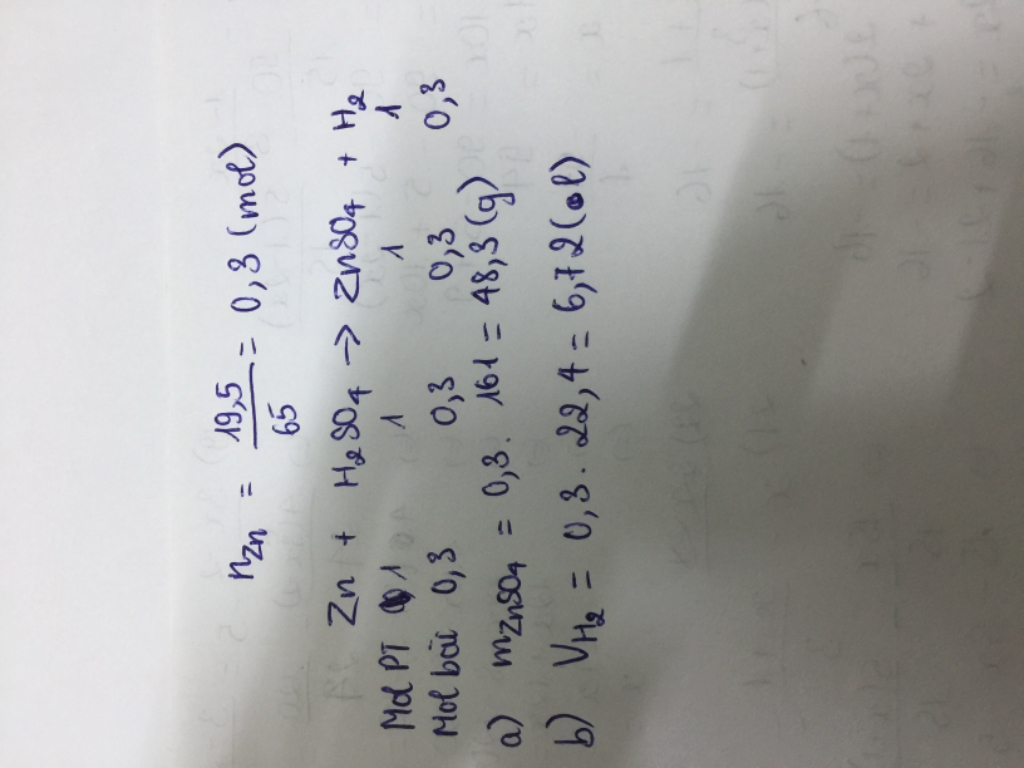 nZn = 19,5/65 = 0,3 (mol)
Zn + H2SO4 -> ZnSO4 + H2
Mol PT 1 1 1 1
Mol bài 0,3 0,3 0,3 0,3
a) mZnSO4 = 0,3. 161 = 48,3 (g)
b) VH2 = 0,3. 22,4 = 6,72 (l)